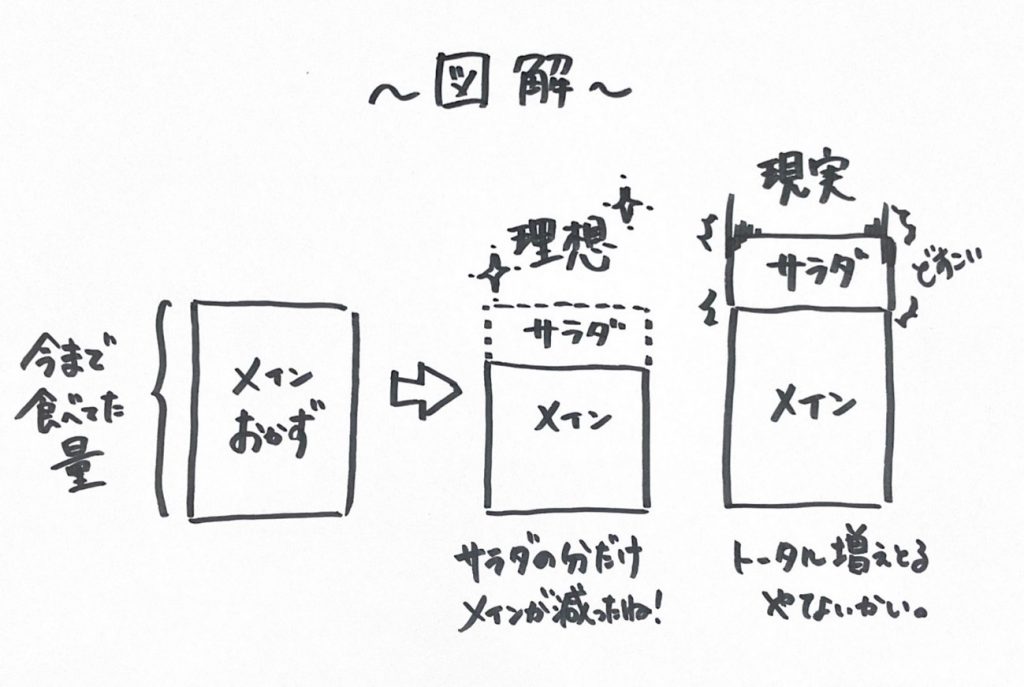 〜図解〜
今まで
食べてた
量
メイン
おかず
理想
サラダ
メイン
サラダの分だけ
メインが減ったね!
現実
サラダ
どすこ"い
メイン
トータル増えとる
やないかい。